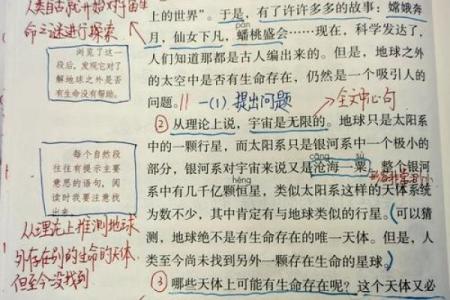 人类自古就开始对宇宙生
命之谜进行探索
上的世界”。于是，有了许许多多的故事：嫦娥奔
pán
月，仙女下凡，蟠桃盛会……现在，科学发达了，
人们知道那都是古人编出来的。但是，地球之外
的太空中是否有生命存在，仍然是一个吸引人的
问题。 一(1) 提出问题
全文中心句
浏览了这一
段后，发现它对了
解地球之外是否
有生命没有帮助。
②从理论上说，宇宙是无限的。地球只是太阳系
中的一颗行星，而太阳系只是银河系中一个极小的
cāng sù
部分，银河系对宇宙来说又是沧海一粟。整个银河
héng
系中有几千亿颗恒星，类似太阳系这样的天体系统
为数不少，其中肯定有与地球类似的行星。可以猜
测，地球绝不是有生命存在的唯一天体。但是，人
类至今尚未找到另外一颗存在生命的星球。
每个自然段
往往有提示主要
意思的语句，阅
读时我要注意找
出来。
从理论上推测地球
外存在别的生命的天体，
但至今没找到
③哪些天体上可能有生命存在呢？这个天体又必